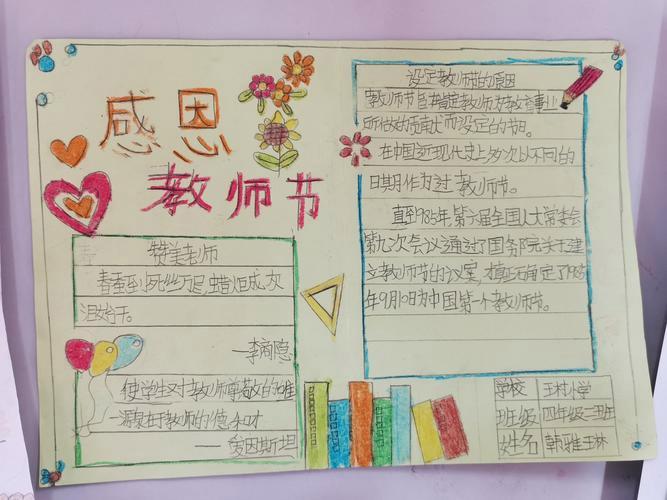 感恩
教师节
赞美老师
春蚕到死丝方尽,蜡炬成灰
泪始干。
—李商隐
使学生对教师尊敬的唯一
源泉在于教师的德和才
— 爱因斯坦
设定教师节的原因
教师节旨在肯定教师对教育事业
所做的贡献而设定的节日。
在中国近现代史上多次以不同的
日期作为过教师节。
直到1985年,第六届全国人大常委会
第九次会议通过了国务院关于建
立教师节的议案,才真正确定了1985
年9月10日为中国第一个教师节。
学校 王村小学
班级 四年级二班
姓名 韩雅